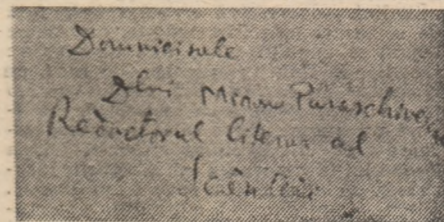 Domniei sale
Dlui Miron Paraschivescu
Redactorul literar al
Scânteii